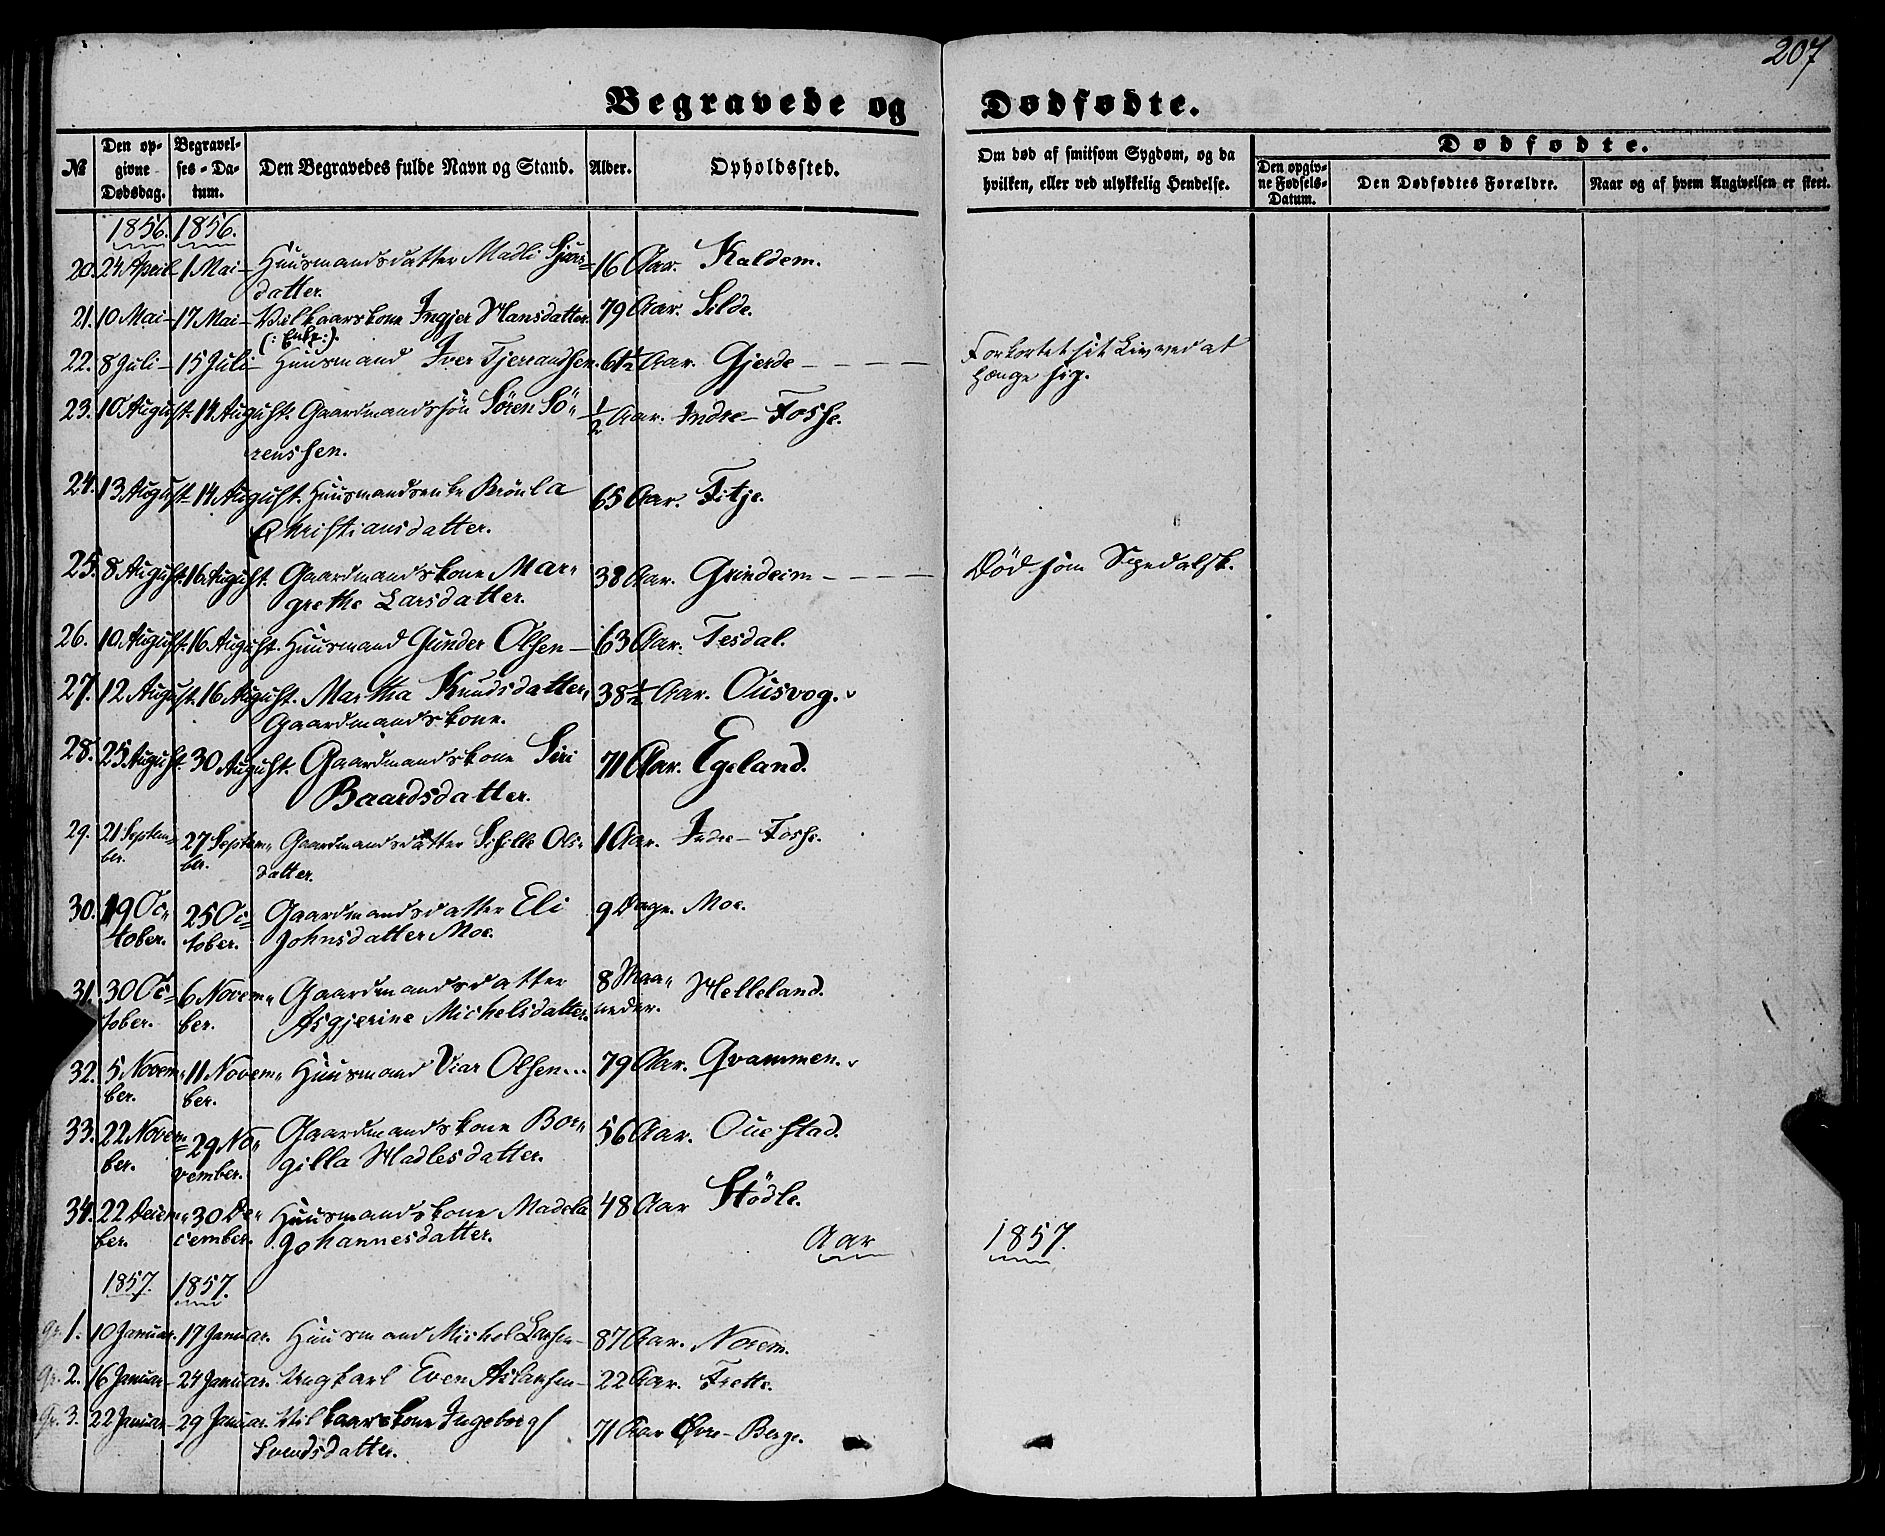 207
Begravede og Dødfødte.
№ Den opgivne Dødsdag. Begravelses-Datum. Den Begravedes fulde Navn og Stand. Alder. Opholdssted. Om død af smitsom Sygdom, og da hvilken, eller ved ulykkelig Hendelse. Dødfødte. Den opgivne Fødsels-Datum. Den Dødfødtes Forældre. Naar og af hvem Angivelsen er skeet.
1856. 1856.
20. 24 April 1 Mai – Huusmandsdatter Madli Sjurs= 16 Aar. Kaldem.
datter.
21. 10 Mai – 17 Mai – Vilkaarskone Ingjer Hansdatter 79 Aar. Silde.
(: Enke :).
22. 8 Juli – 15 Juli – Huusmand Iver Tjerrandsen. 61½ Aar. Gjerde – – – – Forkortet sit Liv ved at
hænge sig.
23. 10 August. 14 August. Gaardmandssøn Sören Sö= ½ Aar. Indre – Fosse.
renssen.
24. 13 August 14 August. Huusmandsenke Brönla 65 Aar. Fitje.
Christiansdatter.
25. 8 August. 16 August. Gaardmandskone Mar= 38 Aar. Grindeim – – – – Död som Spedalsk.
grethe Larsdatter.
26. 10 August. 16 August. Huusmand Gunder Olsen – 63 Aar. Tesdal.
27. 12 August. 16 August. Martha Knudsdatter, 38½ Aar. Ousvog.
Gaardmandskone.
28. 25 August. 30 August. Gaardmandskone Siri 71 Aar. Egeland.
Baardsdatter.
29. 21 Septem= 27 Septem= Gaardmandsdatter Sisille Ols= 1 Aar. Indre – Fosse.
ber. ber. datter.
30. 19 Oc= 25 Oc= Gaardmandsdatter Eli 9 Dage. Moe.
tober. tober. Johnsdatter Moe.
31. 30 Oc= 6 Novem= Gaardmandsdatter 8 Maa= Helleland.
tober. ber. Asgjerine Michelsdatter. neder.
32. 5 Novem= 11 Novem= Huusmand Viar Olsen... 79 Aar. Qvammen.
ber. ber.
33. 22 Novem= 29 No= Gaardmandskone Bor= 56 Aar. Ouestad.
ber. vember. gilla Madlesdatter.
34. 22 Decem= 30 De= Huusmandskone Madela 48 Aar Stödle.
ber. cember. Johannesdatter.
Aar 1857.
1857. 1857.
1. 10 Januar. 17 Januar. Huusmand Michel Larsen – 87 Aar. Norem.
2. 16 Januar – 24 Januar. Ungkarl Even Aslaksen – 22 Aar. Frette.
3. 22 Januar – 29 Januar. Vilkaarskone Ingeborg 71 Aar Øvre – Berge.
Svendsdatter.